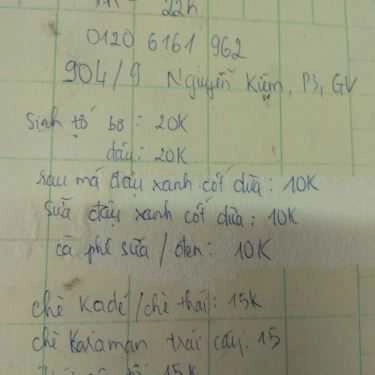 22h
0120 6161 962
904/9 Nguyễn Kiệm, P3, GV
Sinh tố bơ : 20K
dâu : 20K
rau má đậu xanh cốt dừa : 10K
Sữa đậu xanh cốt dừa : 10K
cà phê sữa / đen : 10K
chè Kadé / chè thái : 15K
chè Karaman trái cây : 15
15K